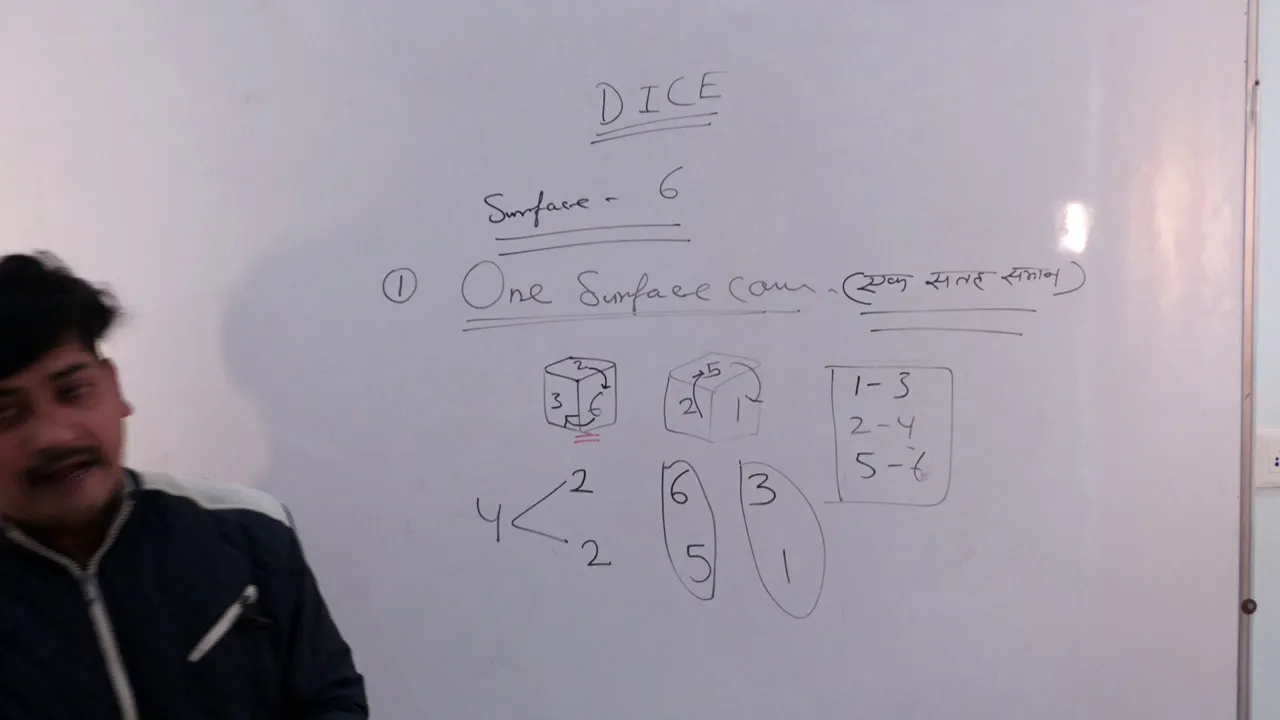 DICE
Surface - 6
① One Surface Com. (एक सतह समान)
2
3 6
5
2 1
1 - 3
2 - 4
5 - 6
4 < 2 2
6 5
3 1